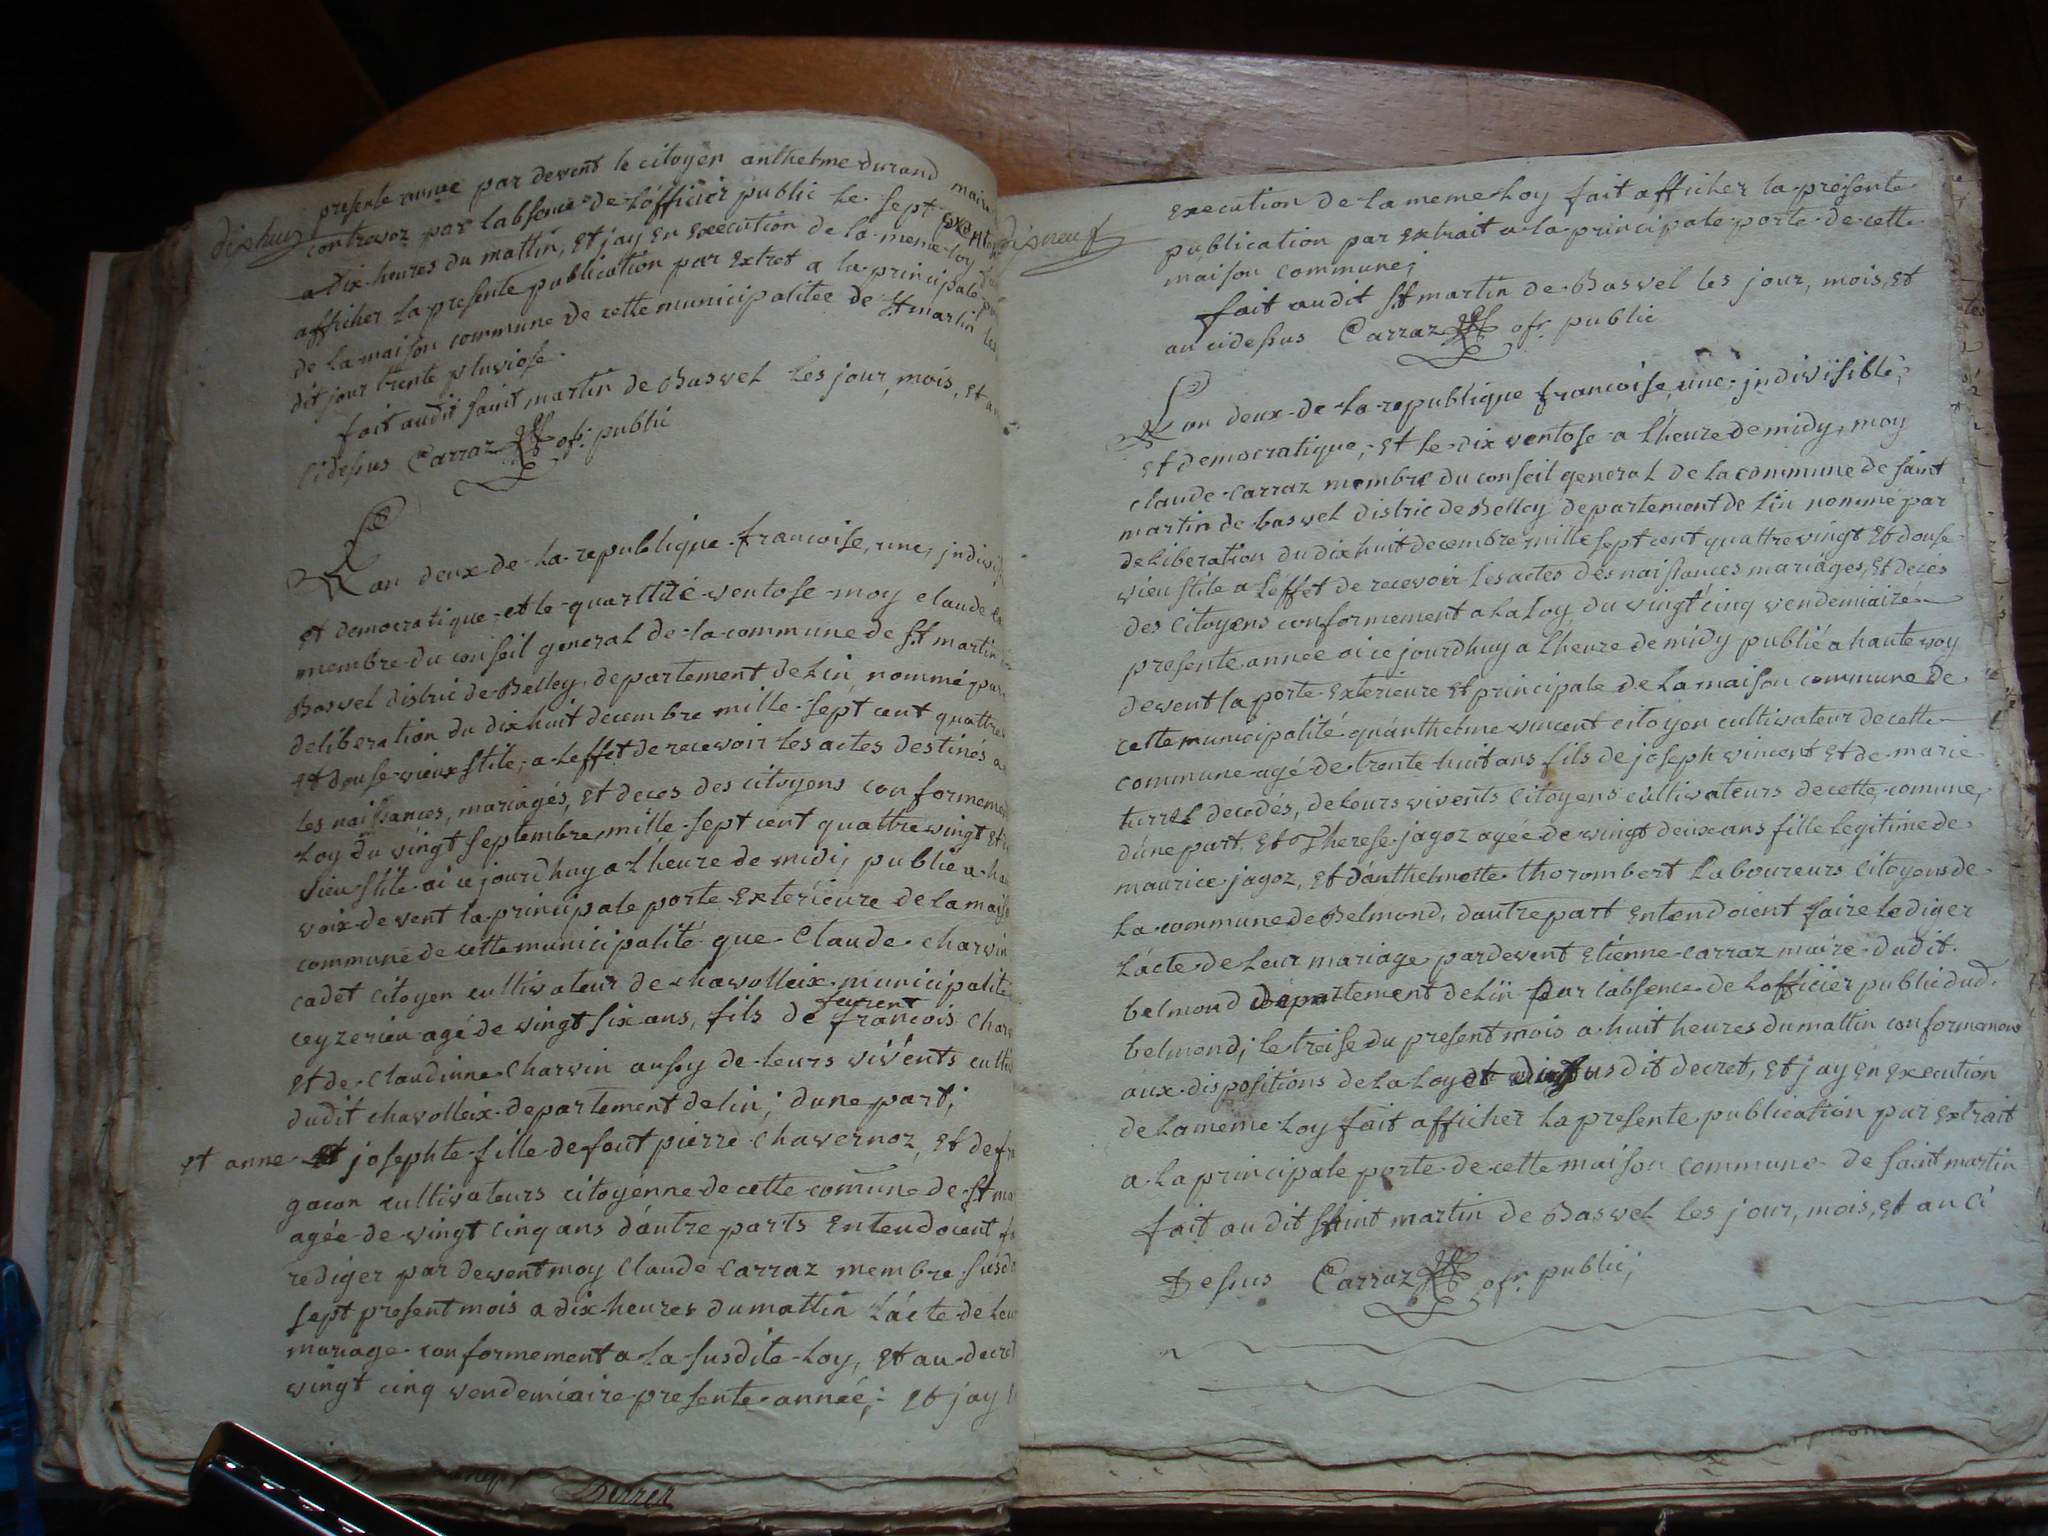 dixhuy
presente année par devent le citoyen anthelme durand maire
contrevoz par labsence de lofficier public le sept
a dix heures du mattin, et jay en execution de la meme loy
afficher la presente publication par extret a la principale
de la maison commune de cette municipalitee de St martin les
dit jour trente pluviose.
fait audit saint martin de Basvel les jour, mois, et an
cidessus Carraz ofr. public
Lan deux de la republique francoise, une, jndivis
et democratique et le quarttze ventose moy claude
membre du conseil general de la commune de St martin
Basvel distric de Belley, departement de Lin, nommé par
deliberation du dixhuit decembre mille sept cent quattre
et douse vieux stile, a leffet de recevoir les actes destines a
les naissances, mariagés, et deces des citoyens conformem
loy du vingt septembre, mille sept cent quattre vingt et
vieu stile ai ce jourdhuy a lheure de midi, publié a ha
voix devent la principale porte exterieure de la mais
commune de cette municipalité que Claude charvin
cadet citoyen cultivateur de chavolleix municipalité
feurent
ceyzerieu agé de vingt six ans, fils de francois char
et de claudinne charvin aussy de leurs vivents cult
dudit chavolleix departement de lin; dune part;
et anne et josephte fille de feut pierre chavernoz, et de fr
gacon cultivateurs citoyenne de cette comune de St mar
agée de vingt cinq ans dáutre parts entendoient
rediger par devent moy claude carraz membre susd
sept present mois a dix heures du mattin lácte de leur
mariage conformement a la susdite loy, et au decret
vingt cinq vendemiaire presente année; et jay
Derren
dixneuf
execution de la meme loy fait afficher la présente
publication par extrait a la principale porte de cette
maison commune;
fait audit St martin de Basvel les jour, mois, et
an cidessus Carraz ofr. public
Lan deux de la republique francoise, une, jndivisiblé,
et democratique, et le dix ventose a lheure de midy, moy
claude carraz membre du conseil general de la commune de saint
martin de basvel distric de Belley departement de Lin nommé par
deliberation du dixhuit decembre mille sept cent quattre vingt et douse
vieu stile a leffet de recevoir les actes des naissances mariages, et deces
des citoyens conformement a la loy, du vingt cinq vendemiaire
presente année ai ce jourdhuy a lheure de midy publié a haute voy
devent la porte exterieure et principale de la maison commune de
cette municipalité quánthelme vincent citoyen cultivateur de cette
commune agé de trente huit ans fils de joseph vincent et de marie
turrel decedés, de leurs vivents citoyens cultivateurs de cette, comune,
dúne part, et Therese jagoz agée de vingt deux ans fille legitime de
maurice jagoz, et dánthelmette thorombert laboureurs citoyens de
la commune de Belmond, dautre part entendoient faire rediger
lácte de leur mariage pardevent etienne carraz maire dudit
belmond departement de lin par labsence de lofficier public dud.
belmond; le treise du present mois a huit heures du mattin conformement
aux dispositions de la loy et du susdit decret, et jay en execution
de la meme loy fait afficher la presente publication par extrait
a la principale porte de cette maison commune de saint martin
fait au dit saint martin de Basvel les jour, mois, et an ci
Dessus Carraz ofr. public;